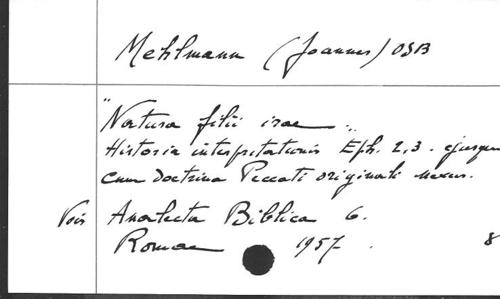 Mehlmann (Joannes) OSB
"Natura filii irae"
Historia interpretationis Eph. 2,3. ejusque
cum doctrina Peccati originali nexus.
Vois Analecta Biblica 6.
Romae 1957.
8